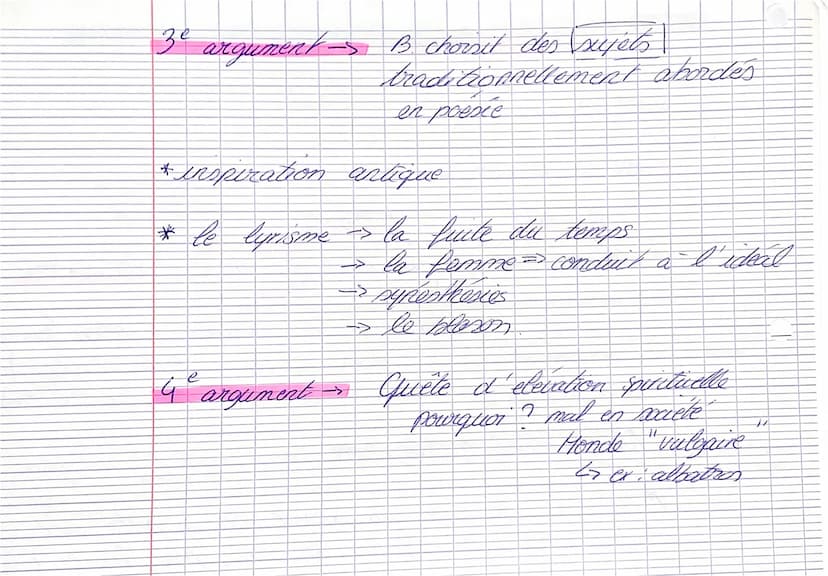 3e argument → B. choisit des sujets
traditionnellement abordés
en poésie
* inspiration antique
* le lyrisme → la fuite du temps
→ la femme => conduit à l'idéal
→ synesthésies
→ le blason.
4e argument → Quête d'elévation spirituelle
pourquoi ? mal en société
Monde "vulgaire"
↳ ex : albatros